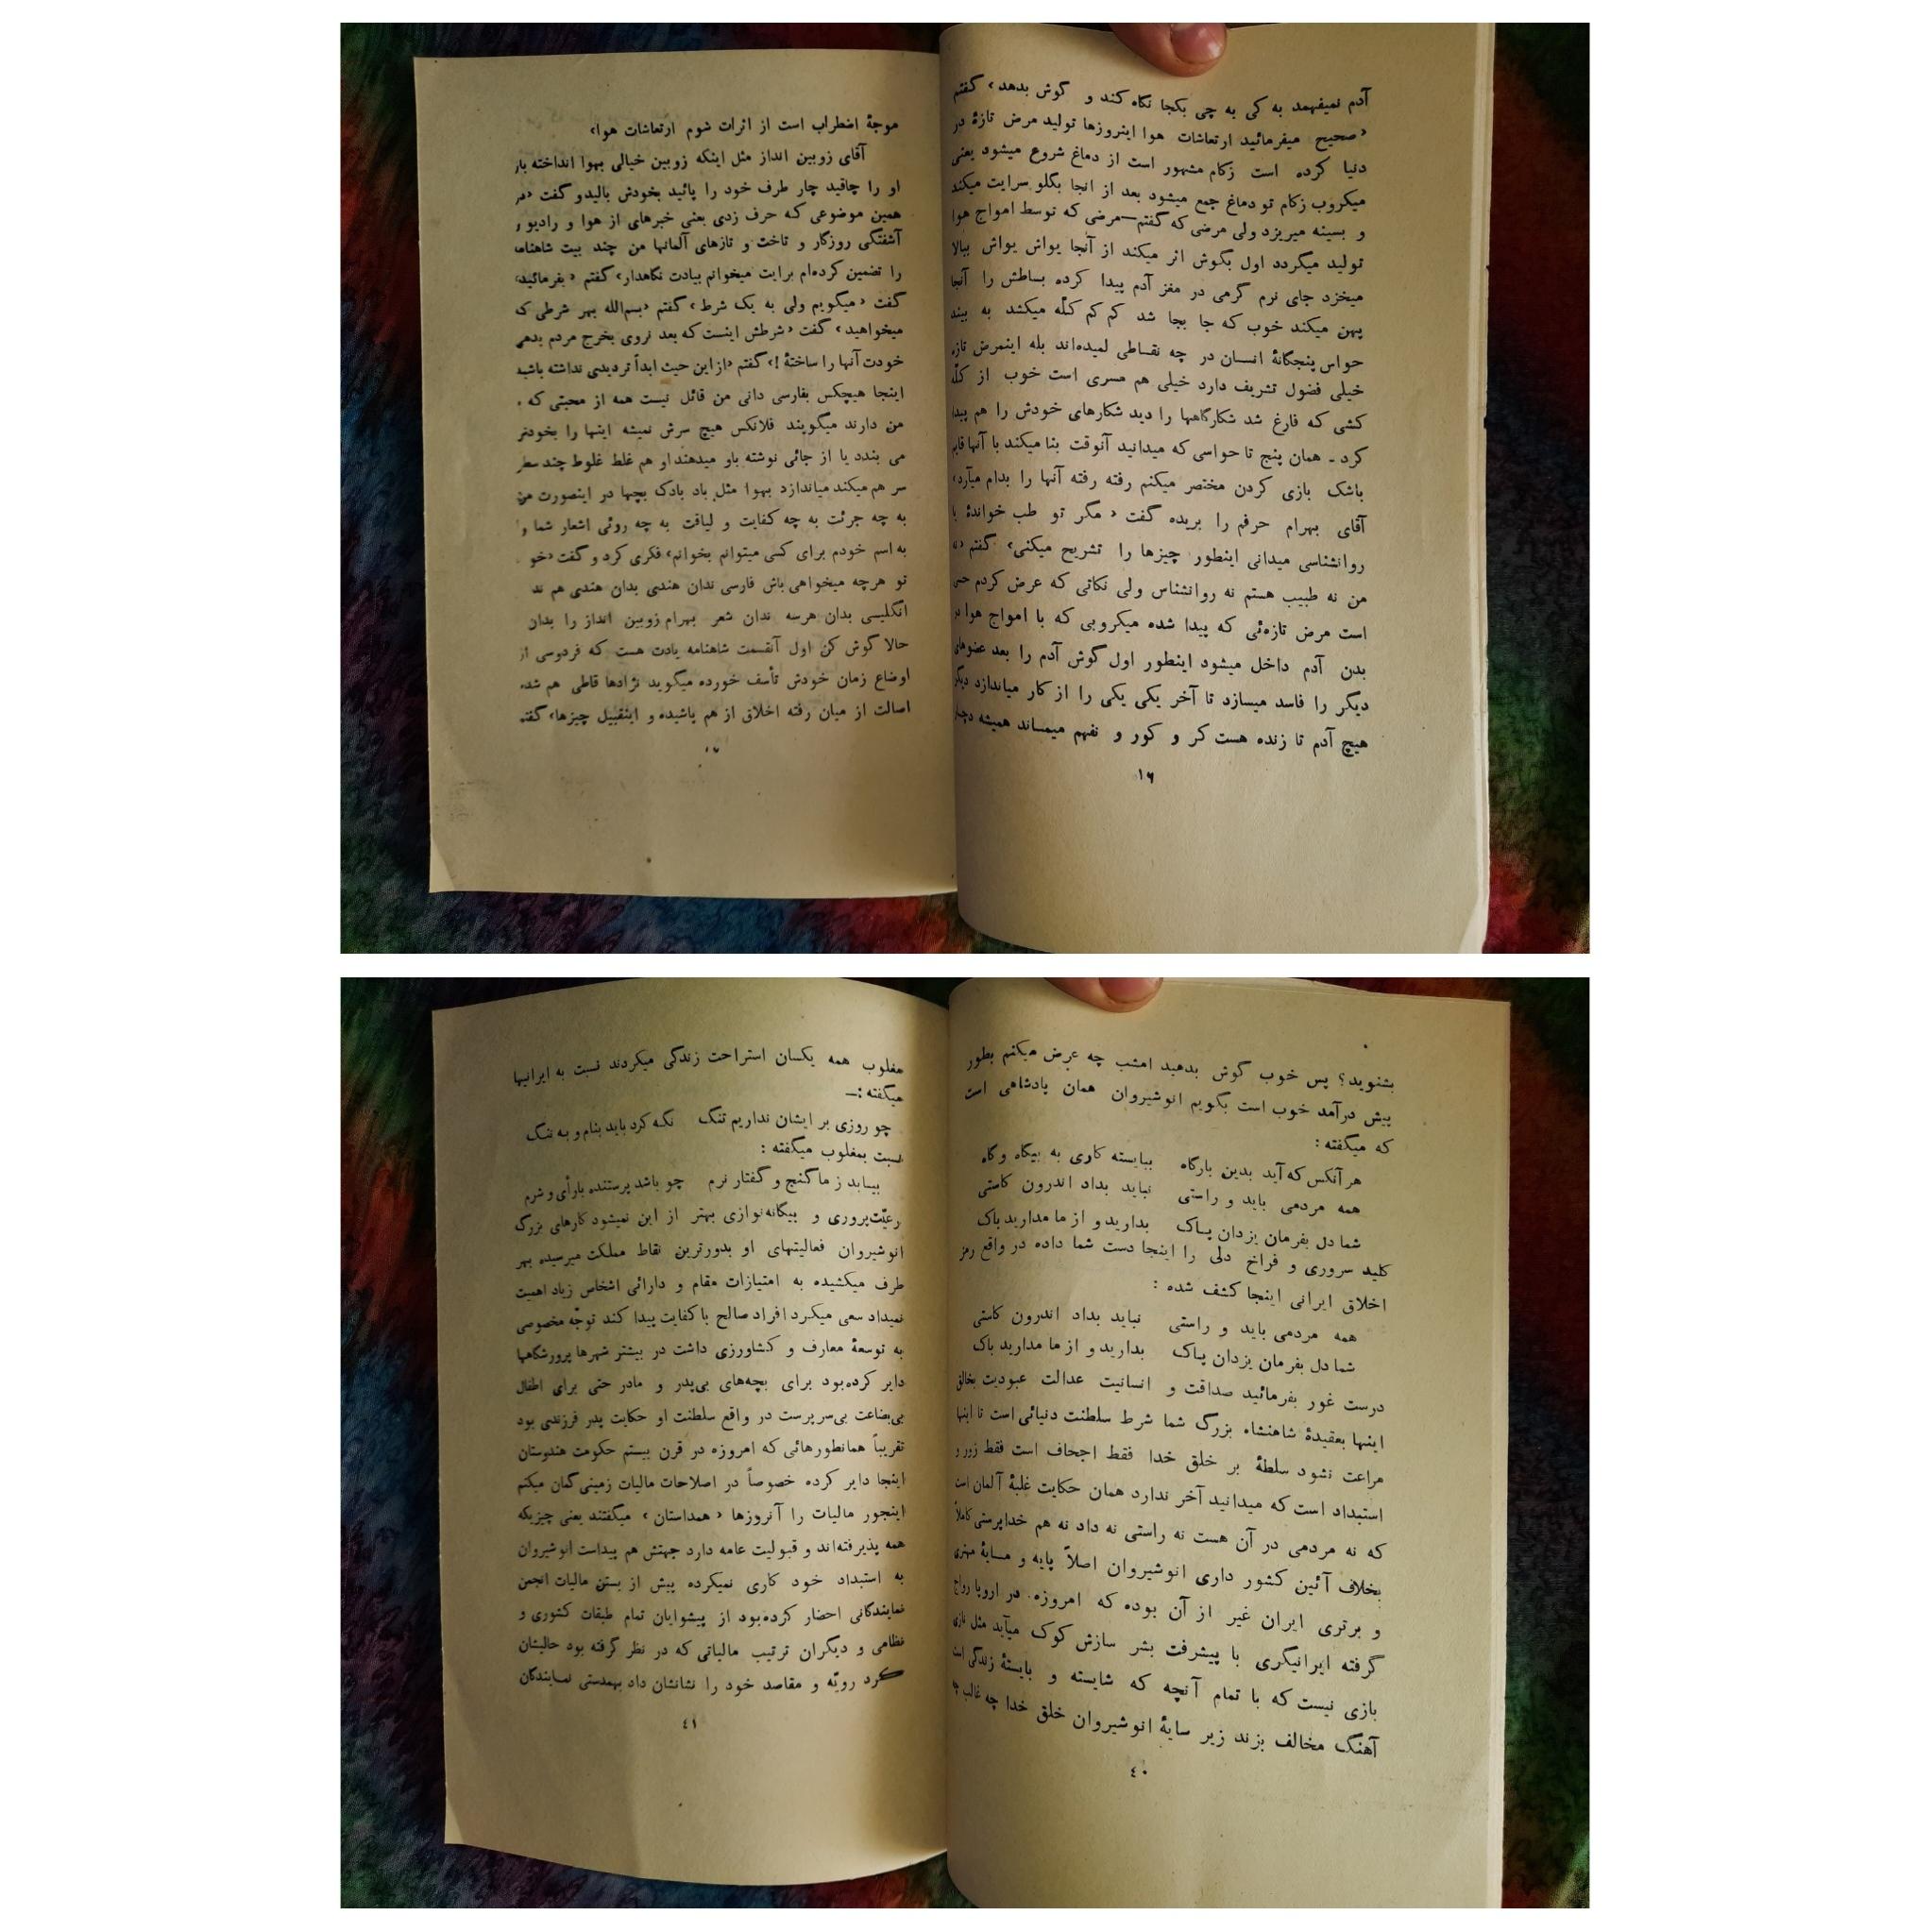 آدم نمیفهمد به کی به چی بکجا نگاه کند و گوش بدهد» گفتم
«صحیح میفرمائید ارتعاشات هوا اینروزها تولید مرض تازهٔ در
دنیا کرده است زکام مشهور است از دماغ شروع میشود یعنی
میکروب زکام تو دماغ جمع میشود بعد از انجا بگلو سرایت میکند
و بسینه میریزد ولی مرضی که گفتم—مرضی که توسط امواج هوا
تولید میگردد اول بگوش اثر میکند از آنجا یواش یواش ببالا
میخزد جای نرم گرمی در مغز آدم پیدا کرده بساطش را آنجا
پهن میکند خوب که جا بجا شد کم کم کلّه میکشد به بیند
حواس پنجگانهٔ انسان در چه نقساطی لمیده‌اند بله اینمرض تازه
خیلی فضول تشریف دارد خیلی هم مسری است خوب از کلّه
کشی که فارغ شد شکارگاهها را دید شکارهای خودش را هم پیدا
کرد ـ همان پنج تا حواسی که میدانید آنوقت بنا میکند با آنها قایم
باشک بازی کردن مختصر میکنم رفته رفته آنها را بدام میآرد»
آقای بهرام حرفم را بریده گفت «مگر تو طب خواندهٔ یا
روانشناسی میدانی اینطور چیزها را تشریح میکنی» گفتم «نه
من نه طبیب هستم نه روانشناس ولی نکاتی که عرض کردم حسی
است مرض تازه‌ئی که پیدا شده میکروبی که با امواج هوا در
بدن آدم داخل میشود اینطور اول گوش آدم را بعد عضوهای
دیگر را فاسد میسازد تا آخر یکی یکی را از کار میاندازد دیگر
هیچ آدم تا زنده هست کر و کور و نفهم میمساند همیشه دچار
۱٦
موجهٔ اضطراب است از اثرات شوم ارتعاشات هوا»
آقای زوبین انداز مثل اینکه زوبین خیالی بهوا انداخته باز
او را چاقید چار طرف خود را پائید بخودش بالیدو گفت «در
همین موضوعی که حرف زدی یعنی خبرهای از هوا و رادیو و
آشفتگی روزگار و تاخت و تازهای آلمانها من چند بیت شاهنامه
را تضمین کرده‌ام برایت میخوانم بیادت نگاهدار» گفتم «بفرمائید»
گفت «میگویم ولی به یک شرط» گفتم «بسم‌الله بهر شرطی که
میخواهید» گفت «شرطش اینست که بعد نروی بخرج مردم بدهی
خودت آنها را ساختهٔ!» گفتم «از این حیث ابداً تردیدی نداشته باشید
اینجا هیچکس بفارسی دانی من قائل نیست همه از محبتی که
من دارند میگویند فلانکس هیچ سرش نمیشه اینها را بخودش
می بندد یا از جائی نوشته باو میدهند او هم غلط غلوط چند سطر
سر هم میکند میاندازد بهوا مثل باد بادک بچها در اینصورت من
به چه جرئت به چه کفایت و لیاقت به چه روئی اشعار شما را
به اسم خودم برای کسی میتوانم بخوانم» فکری کرد و گفت «خو
تو هرچه میخواهی باش فارسی ندان هندی بدان هندی هم ند
انگلیسی بدان هرسه ندان شعر بهرام زوبین انداز را بدان
حالا گوش کن اول آنقسمت شاهنامه یادت هست که فردوسی از
اوضاع زمان خودش تأسف خورده میگوید نژادها قاطی هم شده
اصالت از میان رفته اخلاق از هم پاشیده و اینقبیل چیزها» گفتم
بشنوید؟ پس خوب گوش بدهید امشب چه عرض میکنم بطور
پیش درآمد خوب است بگویم انوشیروان همان پادشاهی است
که میگفته:
هر آنکس که آید بدین بارگاه ببایسته کاری به بیگاه وگاه
همه مردمی باید و راستی نباید بداد اندرون کاستی
شما دل بفرمان یزدان پاک بدارید و از ما مدارید باک
کلید سروری و فراخ دلی را اینجا دست شما داده در واقع رمز
اخلاق ایرانی اینجا کشف شده:
همه مردمی باید و راستی نباید بداد اندرون کاستی
شما دل بفرمان یزدان پاک بدارید و از ما مدارید باک
درست غور بفرمائید صداقت و انسانیت عدالت عبودیت بخالق
اینها بعقیدهٔ شاهنشاه بزرگ شما شرط سلطنت دنیائی است تا اینها
مراعت نشود سلطهٔ بر خلق خدا فقط اجحاف است فقط زور و
استبداد است که میدانید آخر ندارد همان حکایت غلبهٔ آلمان است
که نه مردمی در آن هست نه راستی نه داد نه هم خداپرستی کاملاً
بخلاف آئین کشور داری انوشیروان اصلاً پایه و مسایهٔ مهتری
و برتری ایران غیر از آن بوده که امروزه در اروپا رواج
گرفته ایرانیگری با پیشرفت بشر سازش کوک میآید مثل نازی
بازی نیست که با تمام آنچه که شایسته و بایستهٔ زندگی است
آهنگ مخالف بزند زیر سایهٔ انوشیروان خلق خدا چه غالب چه
٤٠
مغلوب همه یکسان استراحت زندگی میکردند نسبت به ایرانیها
میگفته:—
چو روزی بر ایشان نداریم تنگ نگه کرد باید بنام و به ننگ
نسبت بمغلوب میگفته:
بیسابد ز ما گنج و گفتار نرم چو باشد پرستنده بارأی و شرم
رعیّت‌پروری و بیگانه‌نوازی بهتر از این نمیشود کارهای بزرگ
انوشیروان فعالیتهای او بدورترین نقاط مملکت میرسیده بهر
طرف میکشیده به امتیازات مقام و دارائی اشخاص زیاد اهمیت
نمیداد سعی میکرد افراد صالح با کفایت پیدا کند توجّه مخصوصی
به توسعهٔ معارف و کشاورزی داشت در بیشتر شهرها پرورشگاهها
دایر کرده‌بود برای بچه‌های بی‌پدر و مادر حتی برای اطفال
بی‌بضاعت بی‌سرپرست در واقع سلطنت او حکایت پدر فرزندی بود
تقریباً همانطورهائی که امروزه در قرن بیستم حکومت هندوستان
اینجا دایر کرده خصوصاً در اصلاحات مالیات زمینی گمان میکنم
اینجور مالیات را آنروزها «همداستان» میگفتند یعنی چیزیکه
همه پذیرفته‌اند و قبولیت عامه دارد جهتش هم پیداست انوشیروان
به استبداد خود کاری نمیکرده پیش از بستن مالیات انجمن
نمایندگانی احضار کرده‌بود از پیشوایان تمام طبقات کشوری و
نظامی و دیگران ترتیب مالیاتی که در نظر گرفته بود حالیشان
کرد رویّه و مقاصد خود را نشانشان داد بهمدستی نمایندگان
٤١